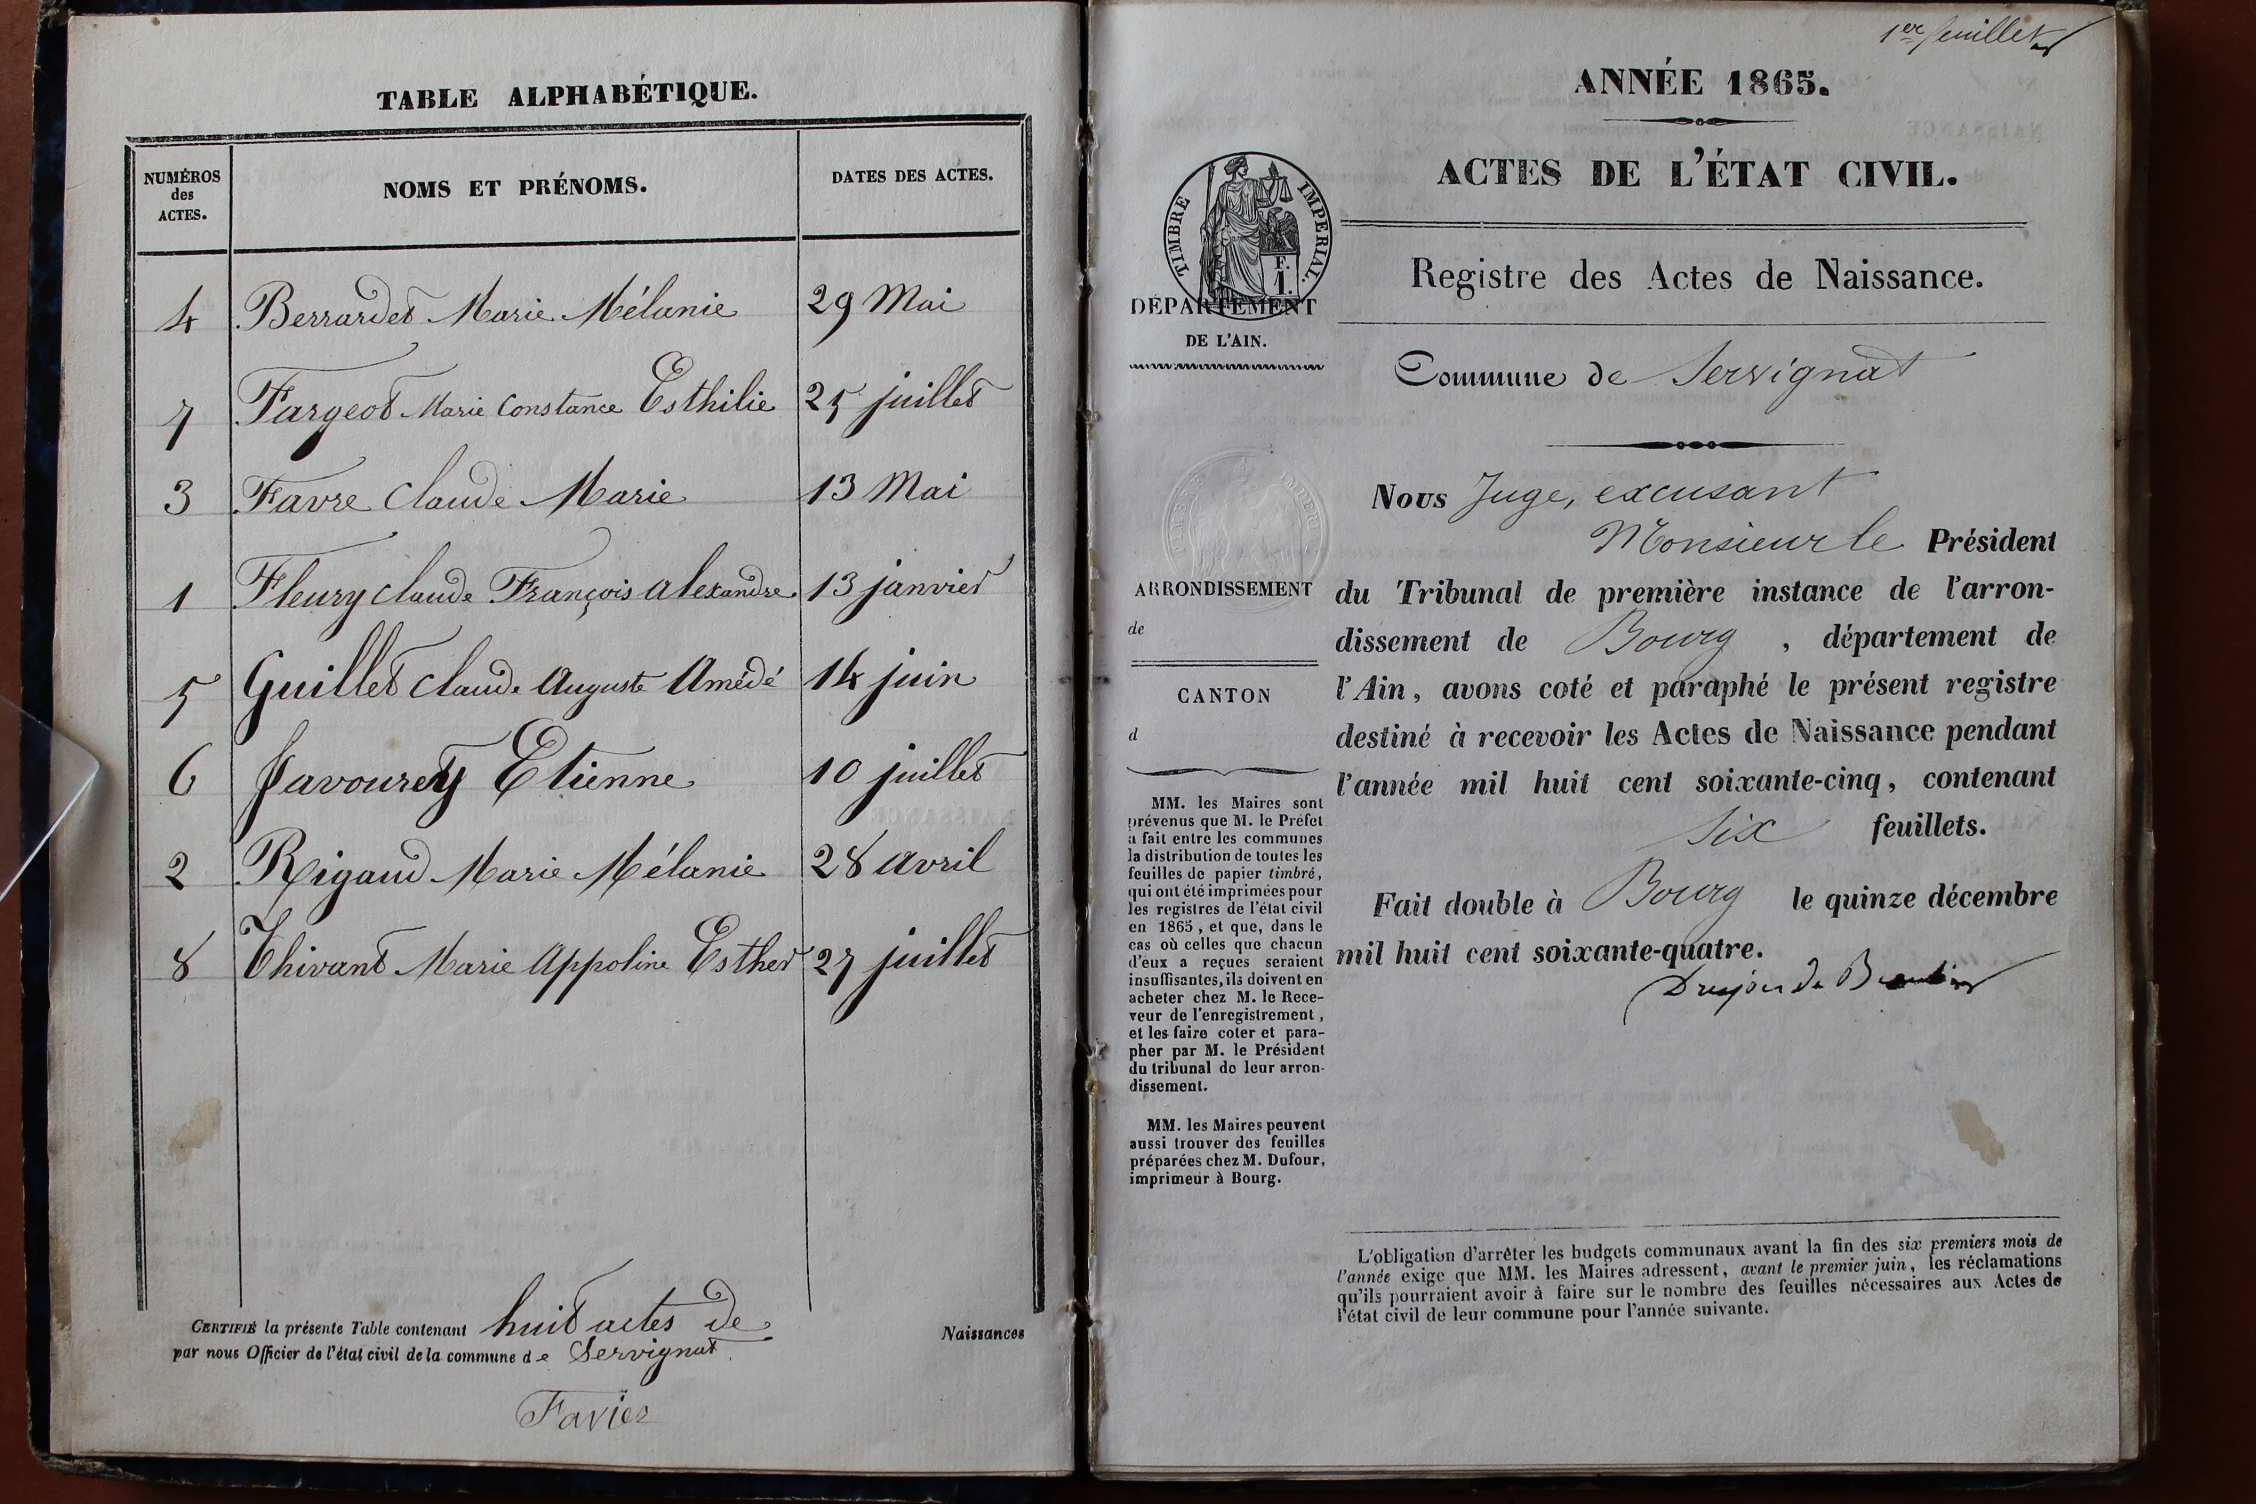 TABLE ALPHABÉTIQUE.
NUMÉROS
des
ACTES.
NOMS ET PRÉNOMS.
DATES DES ACTES.
4 Berrardet Marie Mélanie 29 Mai
7 Fargeot Marie Constance Esthilie 25 juillet
3 Favre Claude Marie 13 Mai
1 Fleury Claude François Alexandre 13 janvier
5 Guillet Claude Auguste Amédé 14 juin
6 Javourey Etienne 10 juillet
2 Rigaud Marie Mélanie 28 avril
8 Thivant Marie Appoline Esther 27 juillet
CERTIFIÉ la présente Table contenant huit actes de Naissances
par nous Officier de l'état civil de la commune de Servignat.
Favier
1er feuillet
ANNÉE 1865.
ACTES DE L'ÉTAT CIVIL.
Registre des Actes de Naissance.
TIMBRE IMPERIAL.
F.
1.
DÉPARTEMENT
DE L'AIN.
Commune de Servignat
Nous Juge, excusant
Monsieur le Président
du Tribunal de première instance de l'arron-
dissement de Bourg, département de
l'Ain, avons coté et paraphé le présent registre
destiné à recevoir les Actes de Naissance pendant
l'année mil huit cent soixante-cinq, contenant
six feuillets.
Fait double à Bourg le quinze décembre
mil huit cent soixante-quatre.
ARRONDISSEMENT
de
CANTON
d
MM. les Maires sont
prévenus que M. le Préfet
a fait entre les communes
la distribution de toutes les
feuilles de papier timbré,
qui ont été imprimées pour
les registres de l'état civil
en 1865, et que, dans le
cas où celles que chacun
d'eux a reçues seraient
insuffisantes, ils doivent en
acheter chez M. le Rece-
veur de l'enregistrement,
et les faire coter et para-
pher par M. le Président
du tribunal de leur arron-
dissement.
MM. les Maires peuvent
aussi trouver des feuilles
préparées chez M. Dufour,
imprimeur à Bourg.
L'obligation d'arrêter les budgets communaux avant la fin des six premiers mois de
l'année exige que MM. les Maires adressent, avant le premier juin, les réclamations
qu'ils pourraient avoir à faire sur le nombre des feuilles nécessaires aux Actes de
l'état civil de leur commune pour l'année suivante.